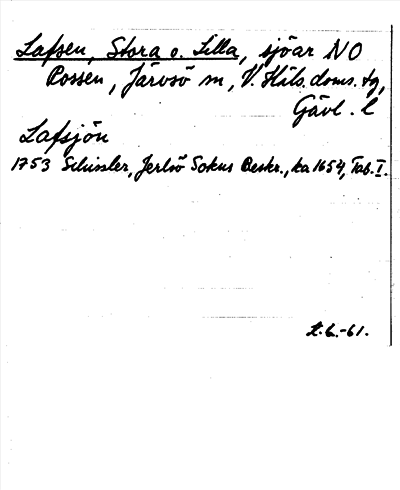 Lafsen, Stora o. Lilla, sjöar NO
Rossen, Järvsö sn, V. Häls. doms. tg,
Gävl. l
Lafsjön
1753 Schissler, Jerlsö Sokns Beskr., ka 1654, Tab. I.
L.L.-61.